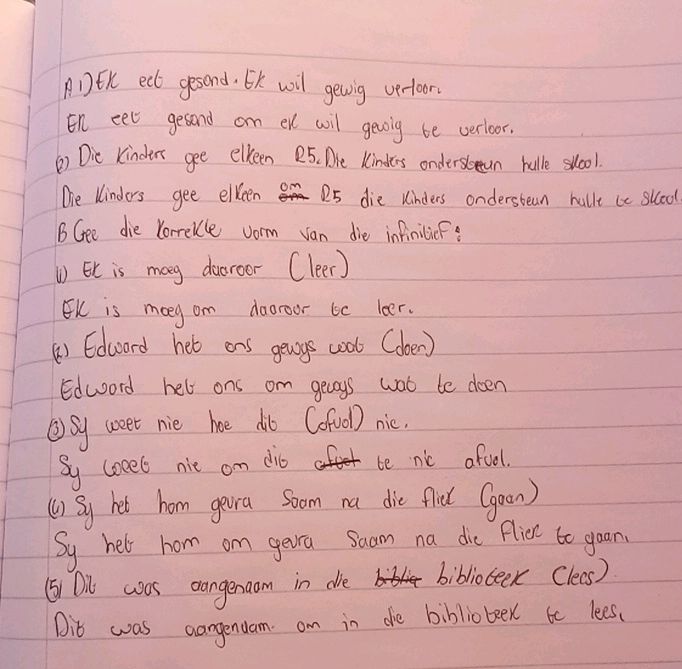 A 1) Ek eet gesond. Ek wil gewig verloor.
Ek eet gesond om ek wil gewig te verloor.
(2) Die Kinders gee elkeen R5. Die Kinders ondersteun hulle skool.
Die Kinders gee elkeen om R5 die Kinders ondersteun hulle te skool
B Gee die korrekte vorm van die infinitief:
(1) Ek is moeg daaroor (leer)
Ek is moeg om daaroor te leer.
(2) Edward het ons gewys wat (doen)
Edward het ons om gewys wat te doen
(3) Sy weet nie hoe dit (afual) nie.
Sy weet nie om dit te nie afual.
(4) Sy het hom gevra saam na die fliek (gaan)
Sy het hom om gevra saam na die fliek te gaan.
(5) Dit was aangenaam in die biblioteek (lees).
Dit was aangenaam om in die biblioteek te lees.